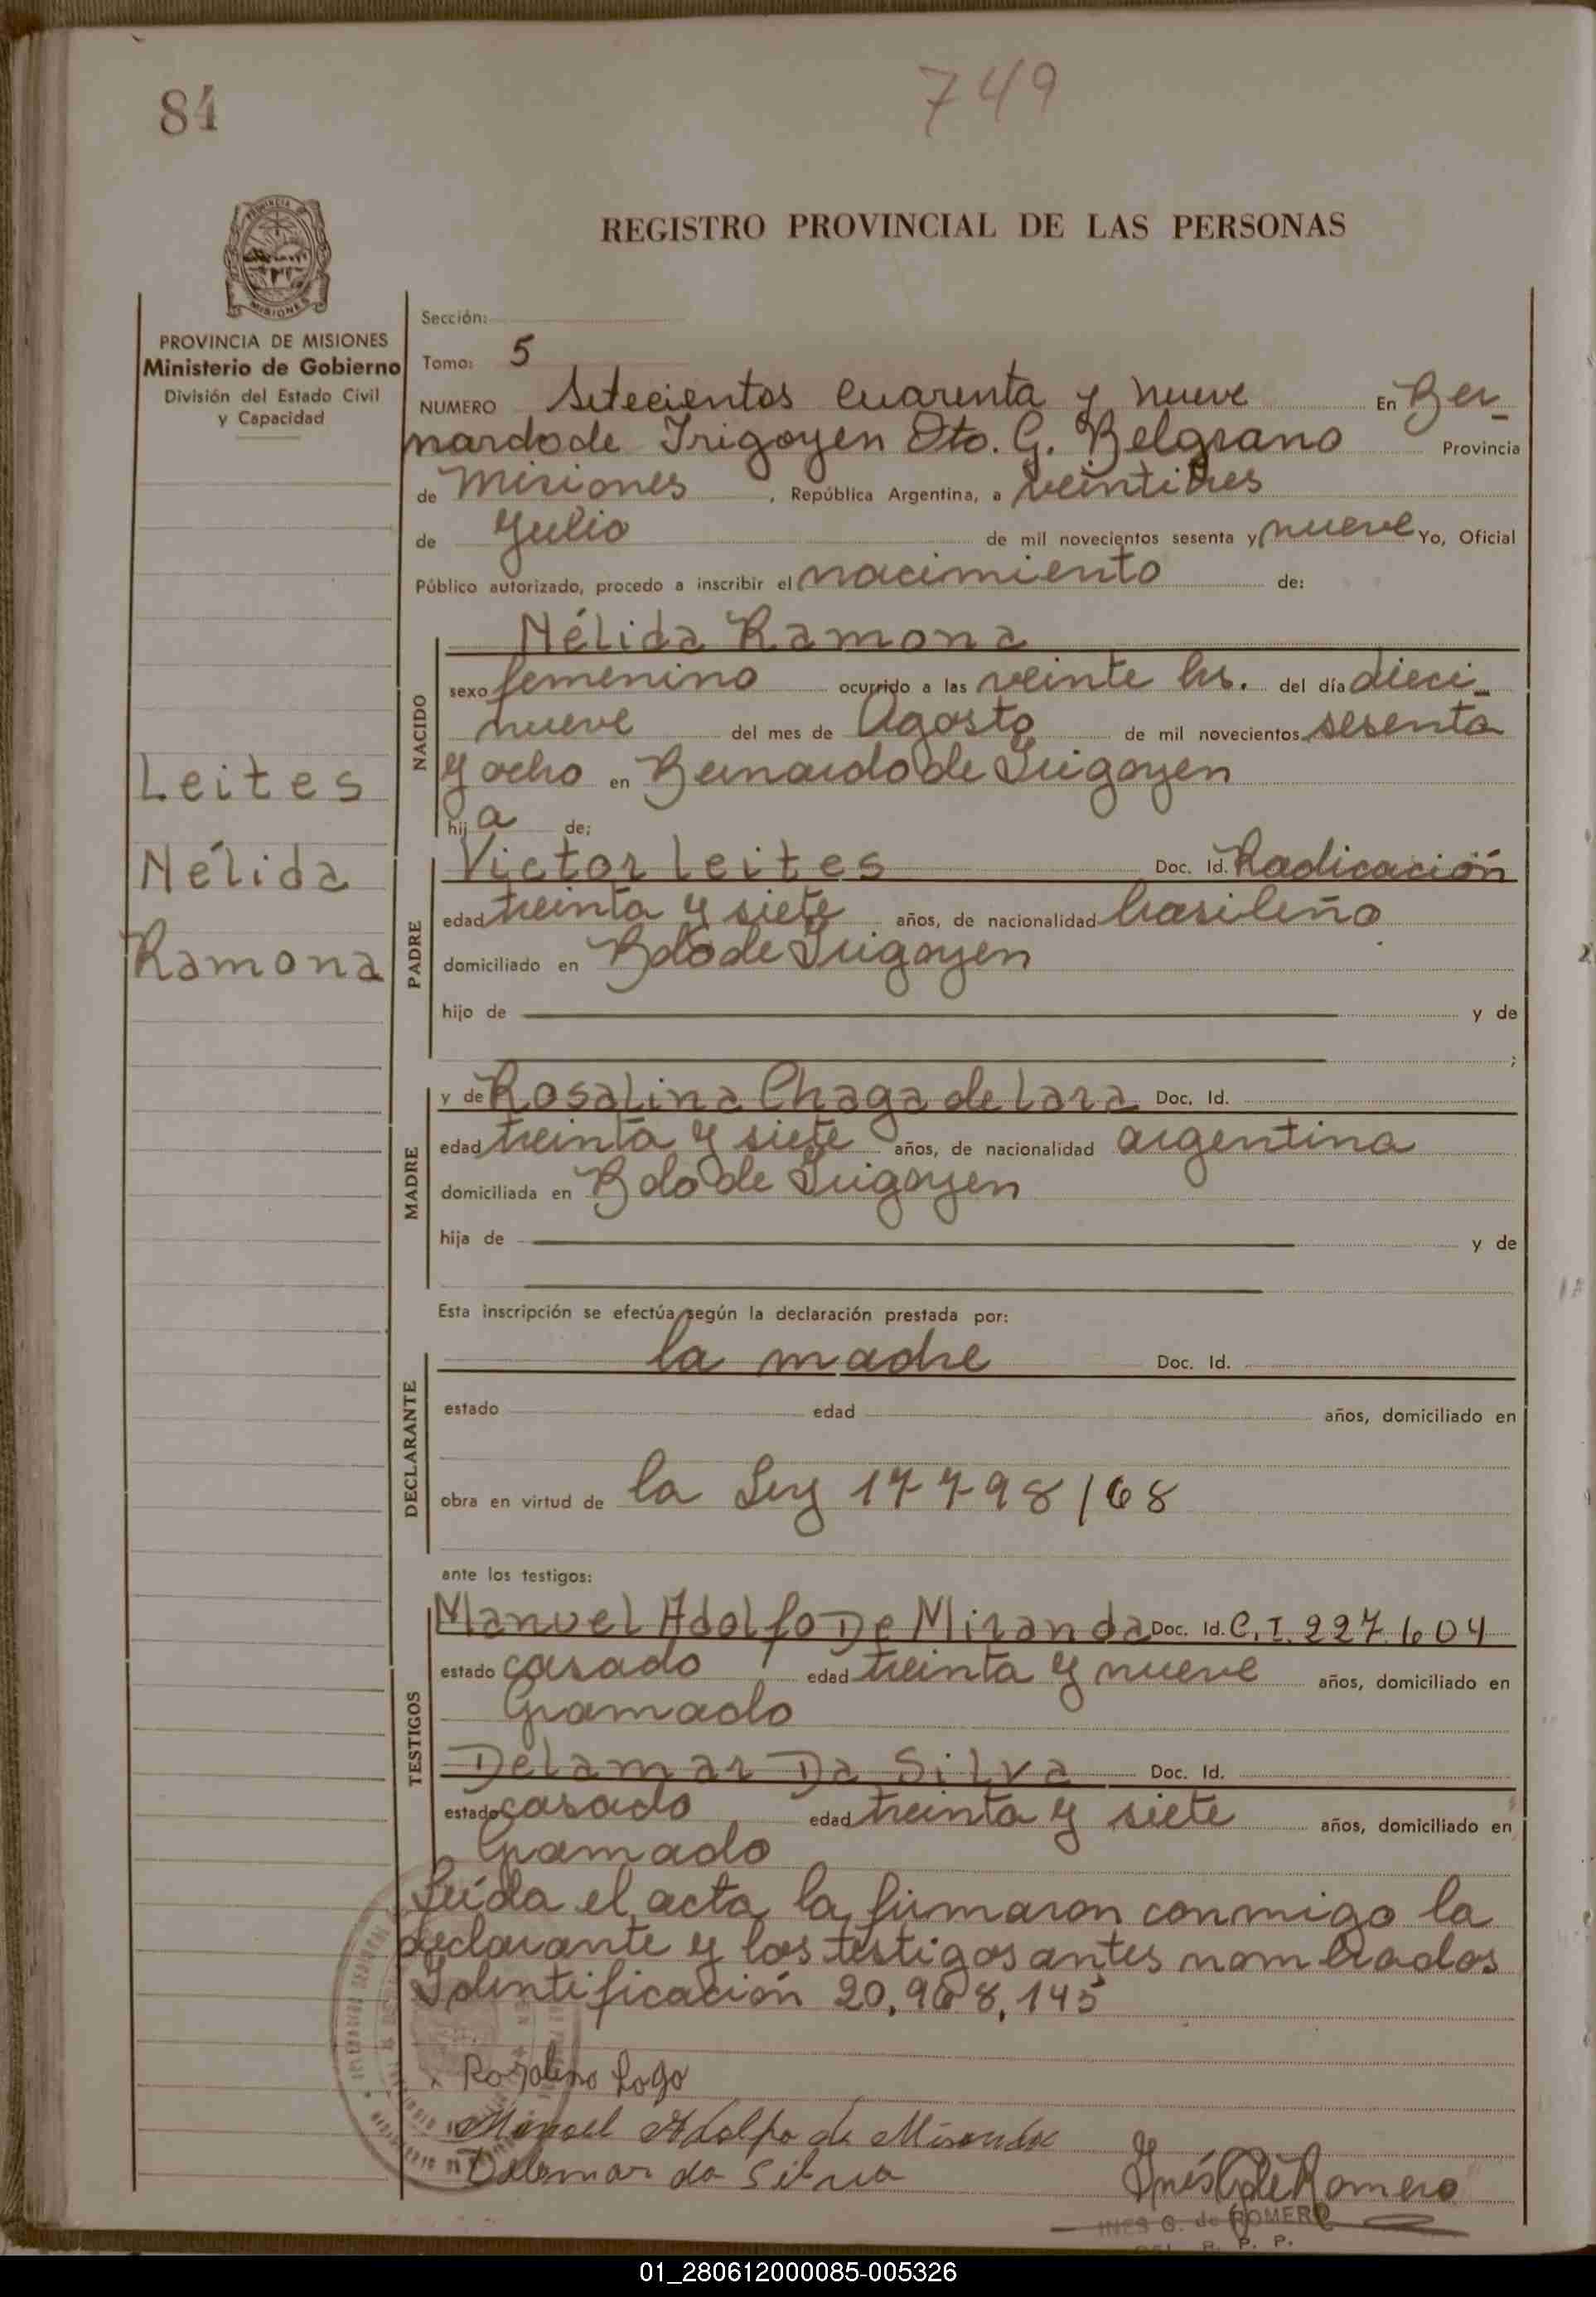 84
749
REGISTRO PROVINCIAL DE LAS PERSONAS
PROVINCIA
MISIONES
PROVINCIA DE MISIONES
Ministerio de Gobierno
División del Estado Civil
y Capacidad
Leites
Nélida
Ramona
Sección:
Tomo: 5
NUMERO Setecientos cuarenta y nueve En Ber-
nardo de Irigoyen Dto. G. Belgrano Provincia
de Misiones, República Argentina, a veintitres
de Julio de mil novecientos sesenta y nueve Yo, Oficial
Público autorizado, procedo a inscribir el nacimiento de:
NACIDO
Nélida Ramona
sexo femenino ocurrido a las veinte hs. del día dieci-
nueve del mes de Agosto de mil novecientos sesenta
y ocho en Bernardo de Irigoyen
hija de:
PADRE
Victor Leites Doc. Id. Radicación
edad treinta y siete años, de nacionalidad brasileño
domiciliado en Bdo de Irigoyen
hijo de y de
;
MADRE
y de Rosalina Chaga de Lara Doc. Id.
edad treinta y siete años, de nacionalidad argentina
domiciliada en Bdo de Irigoyen
hija de y de
Esta inscripción se efectúa según la declaración prestada por:
DECLARANTE
la madre Doc. Id.
estado edad años, domiciliado en
obra en virtud de la Ley 17798/68
ante los testigos:
TESTIGOS
Manuel Adolfo De Miranda Doc. Id. C.I. 227.604
estado casado edad treinta y nueve años, domiciliado en
Gramado
Delamar Da Silva Doc. Id.
estado casado edad treinta y siete años, domiciliado en
Gramado
Leída el acta la firmaron conmigo la
declarante y los testigos antes nombrados
Identificación 20,968,145
Manoel Adolfo de Miranda
Delamar da Silva
Inés G de Romero
INES G. de ROMERO
R. P. P.
01_280612000085-005326